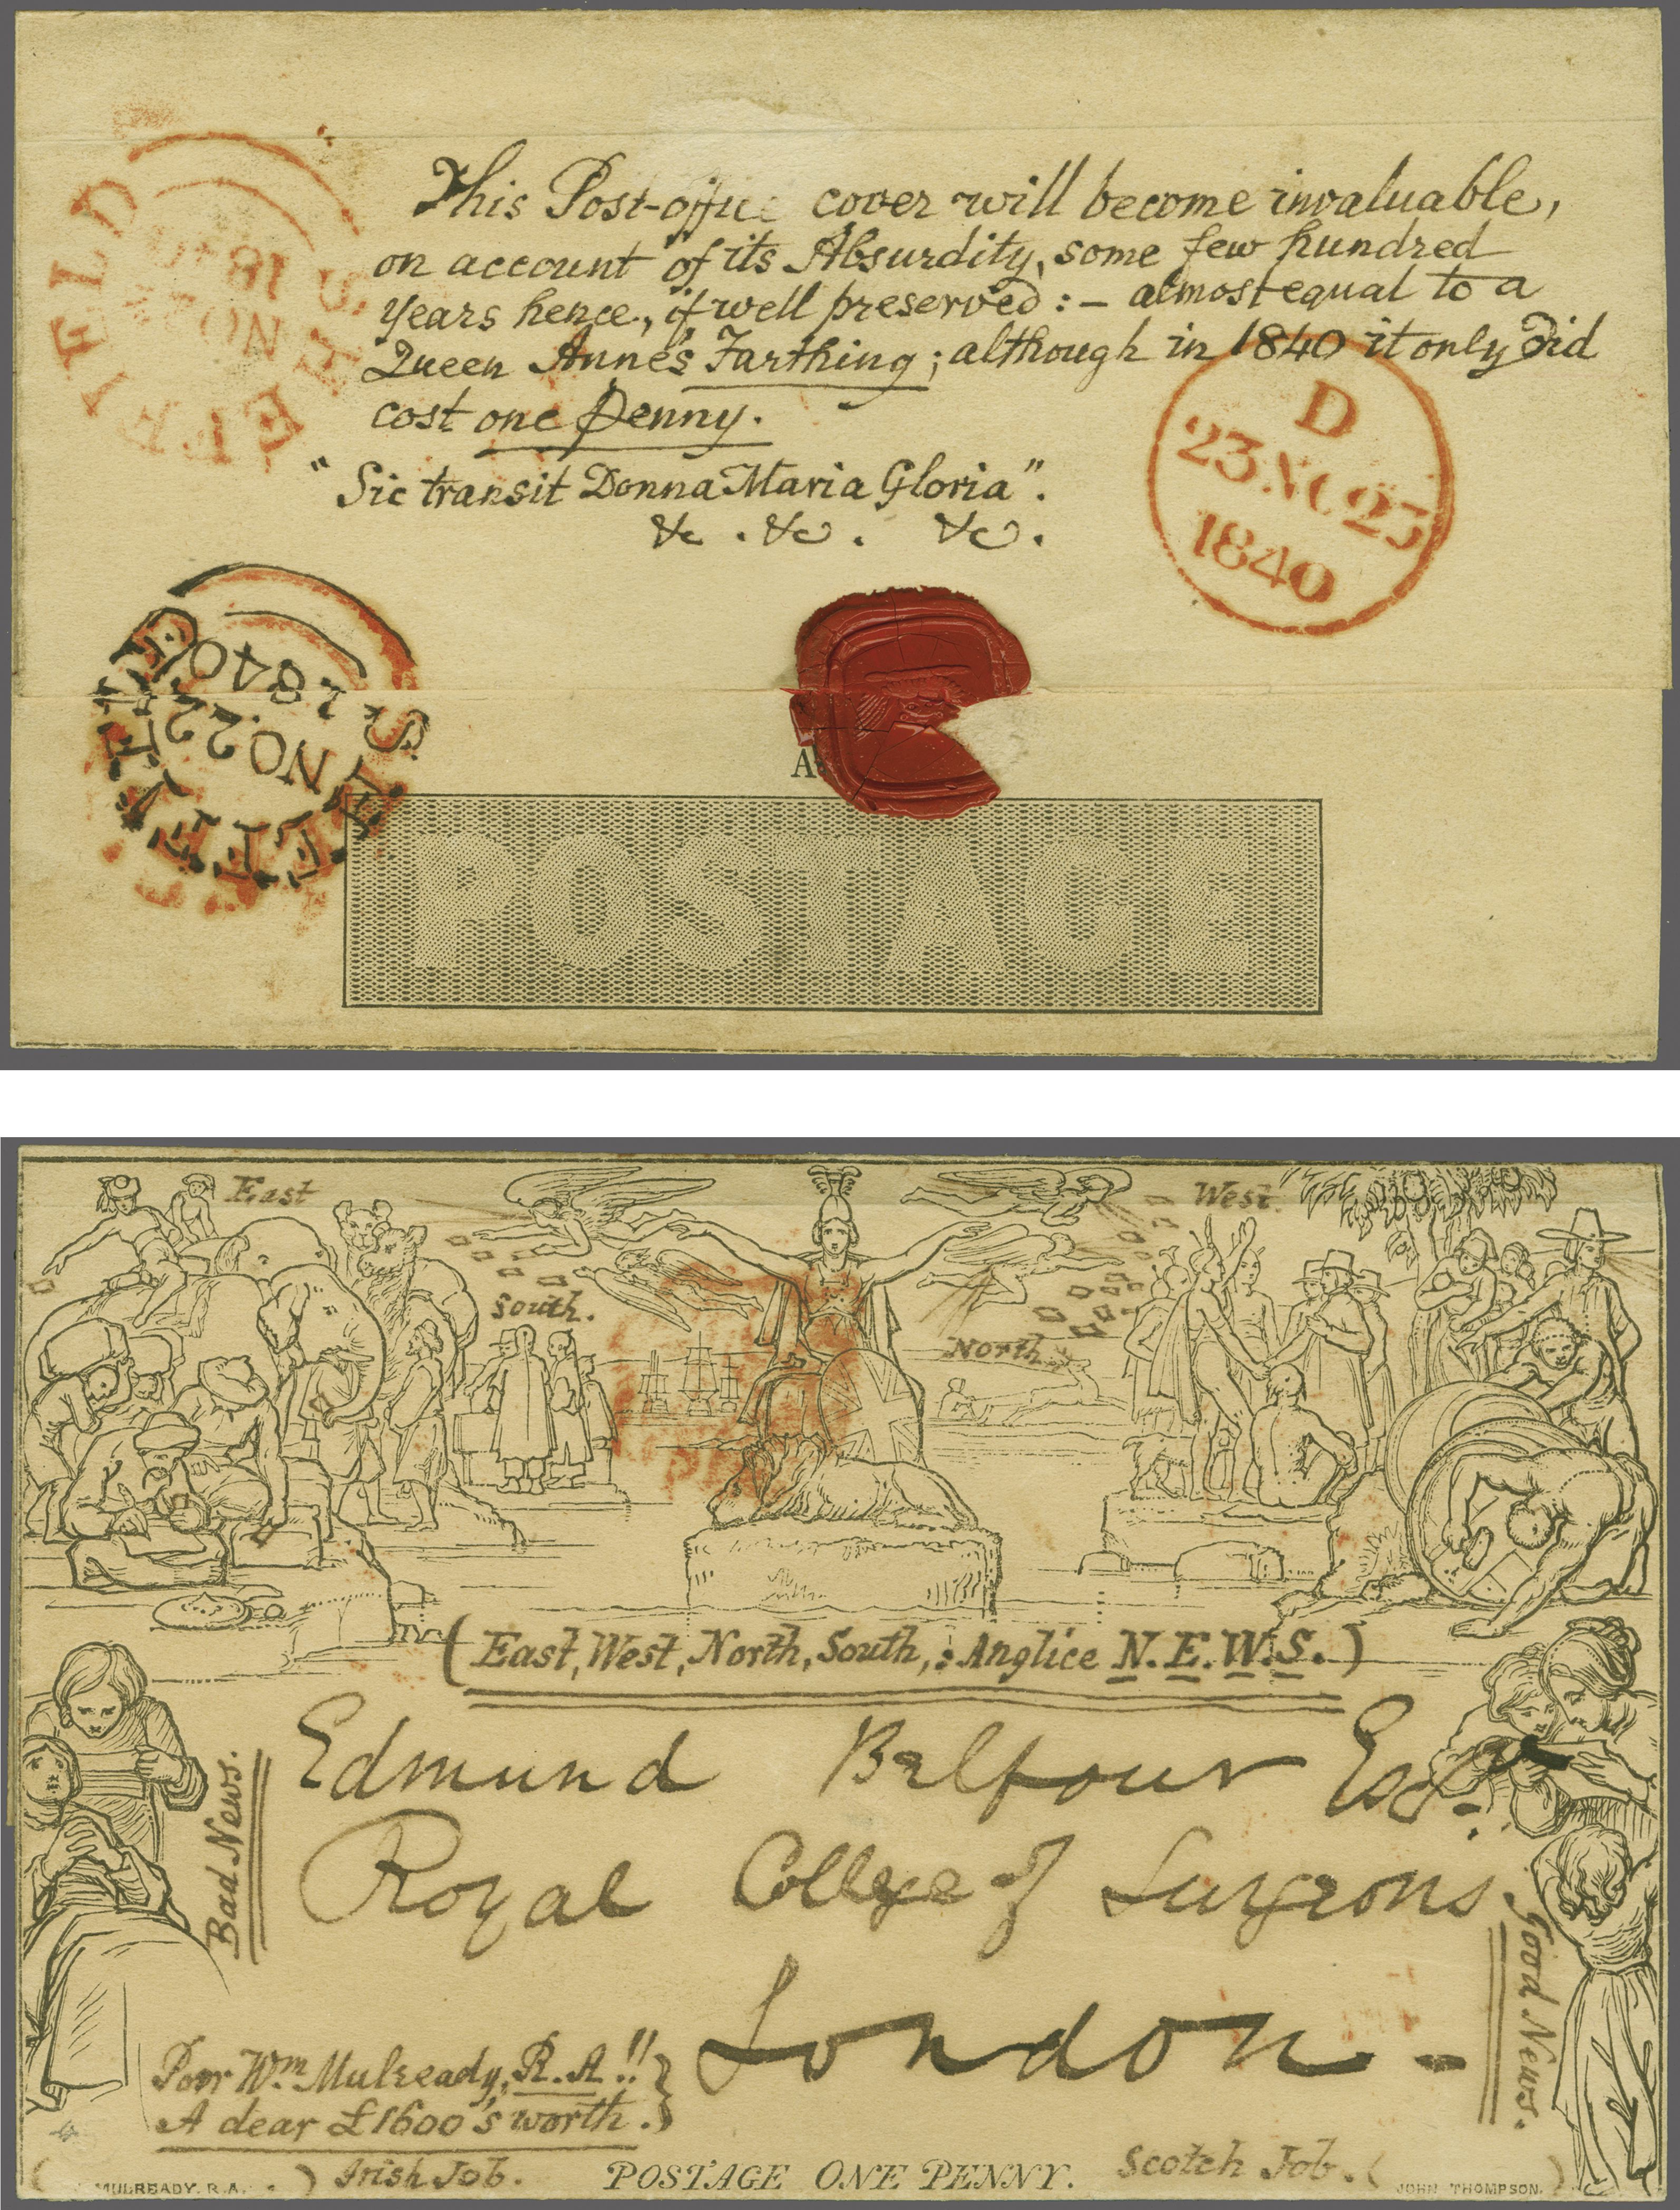 This Post-office cover will become invaluable,
on account of its Absurdity, some few hundred
years hence, if well preserved: – almost equal to a
Queen Anne's Farthing; although in 1840 it only did
cost one Penny.
"Sic transit Donna Maria Gloria".
&c. &c. &c.
SHEFFIELD
NO
1840
D
23 NO 23
1840
SHEFFIELD
NO 22
1840
A
POSTAGE
East
West.
South.
North.
(East, West, North, South,: Anglice N.E.W.S.)
Edmund Balfour Esqr.
Royal College of Surgeons
London -
Bad News.
Good News.
Poor Wm Mulready, R.A.!!
A dear £1600's worth.
( MULREADY. R.A. ) Irish Job.
POSTAGE ONE PENNY.
Scotch Job. ( JOHN THOMPSON. )